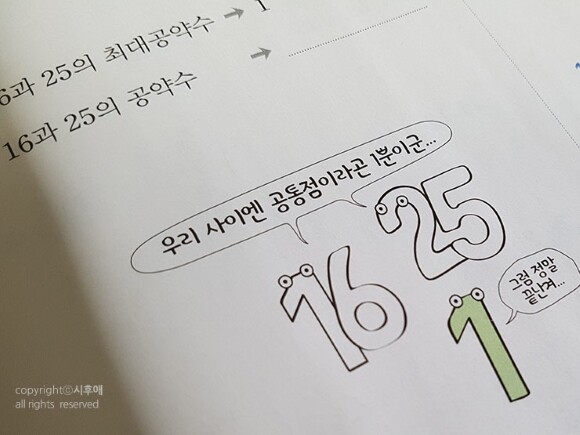 6과 25의 최대공약수 → 1
16과 25의 공약수 →
우리 사이엔 공통점이라곤 1뿐이군...
16
25
1
그럼 정말
끝난겨...
copyrightⓒ시후애
all rights reserved